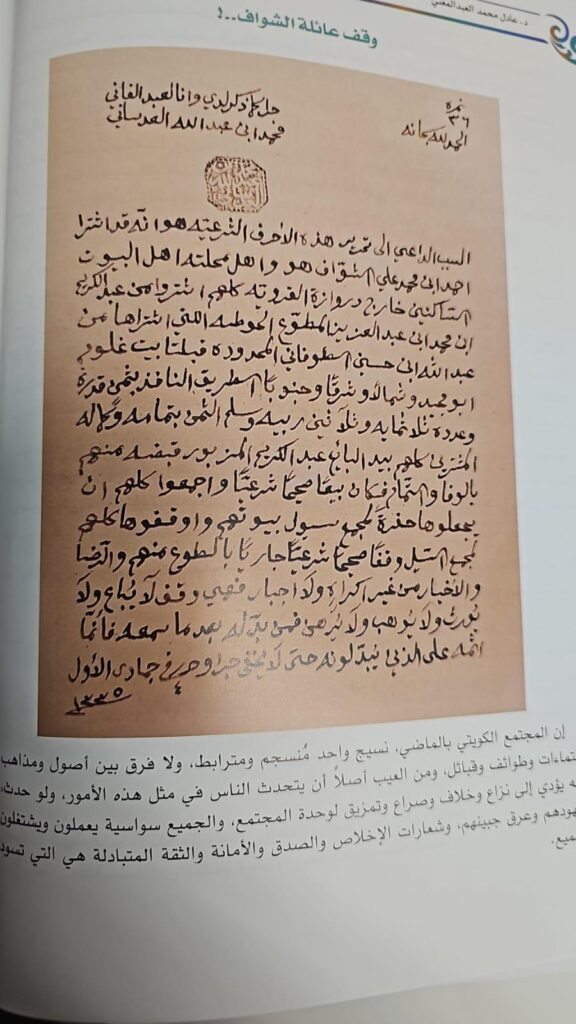 د. عادل محمد العبدالمغني
وقف عائلة الشواف..!
نمرة
٣٦
الحمد لله سبحانه
جرى كما ذكر لدي وانا العبد الفاني
محمد ابن عبد الله العدساني
السبب الداعي الى تحرير هذه الأحرف الشرعيه هو انه قد اشترا
احمد ابن محمد علي الشواف هو واهل محلته اهل البيوت
الساكنين خارج دروازة القرويه كلهم اشتروا من عبد الكريم
ابن محمد ابن عبد العزيز المطوع الحوطه اللتي اشتراها من
عبد الله ابن حسين الطوفاني المحدوده قبلتا بيت غلوم
ابو مجيد وشمالاً وشرقاً وجنوباً الطريق النافذ بثمن قدره
وعدده ثلاثمايه وثلاثين ربيه وسلم الثمن بتمامه وكماله
المشترين كلهم بيد البائع عبد الكريم المزبور قبضه منهم
بالوفا والتمام فكان بيعاً صحيحاً شرعياً واجمعوا كلهم ان
يجعلوها حفرة لمجمع سيول بيوتهم واوقفوها كلهم
لمجمع السيل وقفاً صحيحاً شرعياً جارياً بالطوع منهم والرضا
والأخبار من غير اكراه ولا اجبار فهي وقف لا يباع ولا
يورث ولا يوهب ولا يرهن فمن بدله بعد ما سمعه فانما
اثمه على الذين يبدلونه حتى لا يخفى جرا وحرر في ٤ جمادى الأول
١٣٣٥
إن المجتمع الكويتي بالماضي، نسيج واحد مُنسجم ومترابط، ولا فرق بين أصول ومذاهب
تماءات وطوائف وقبائل، ومن العيب أصلاً أن يتحدث الناس في مثل هذه الأمور، ولو حدث،
ه يؤدي إلى نزاع وخلاف وصراع وتمزيق لوحدة المجتمع، والجميع سواسية يعملون ويشتغلون
هودهم وعرق جبينهم، وشعارات الإخلاص والصدق والأمانة والثقة المتبادلة هي التي تسود
ميع.